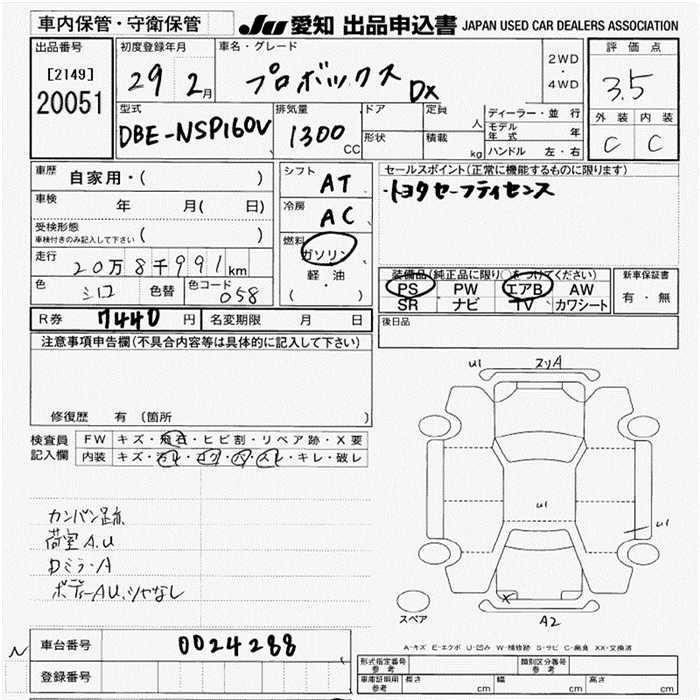 車内保管・守衛保管 JU 愛知 出品申込書 JAPAN USED CAR DEALERS ASSOCIATION
出品番号
[2149]
20051
初度登録年月
29 2月
車名・グレード
プロボックス DX
2WD
・
4WD
評価点
3.5
外装 内装
C C
型式
DBE-NSP160V
排気量
1300 CC
ドア
形状
定員 人
積載 kg
ディーラー・並行
モデル年式 年
ハンドル 左・右
車歴 自家用・( )
車検 年 月( 日)
受検形態
車検付きのみ記入して下さい ( )
走行 20万8千991km
色 シロ 色替 色コード 058
シフト AT
冷房 AC
燃料 ガソリン
軽・油
( )
セールスポイント(正常に機能するものに限ります)
・トヨタセーフティセンス
装備品(純正品に限り○をつけてください)
PS PW エアB AW
SR ナビ TV カワシート
新車保証書
有・無
後日品
R券 7440 円 名変期限 月 日
注意事項申告欄(不具合内容等は具体的に記入して下さい)
修復歴 有 (箇所 )
検査員記入欄
FW キズ・飛石・ヒビ割・リペア跡・X要
内装 キズ・ヨゴレ・コゲ・穴・スレ・キレ・破レ
カンバン跡
荷室A.U
Dミラ-A
ボディーAU、シャなし
u1 スリA
u1
u1
X
A2
スペア
A-キズ E-エクボ U-凹み W-補修跡 S-サビ C-腐食 XX-交換済
N 車台番号 0024288
登録番号
形式指定番号 参考
類別区分番号 参考
車庫証明用 参考 長さ cm 幅 cm 高さ cm